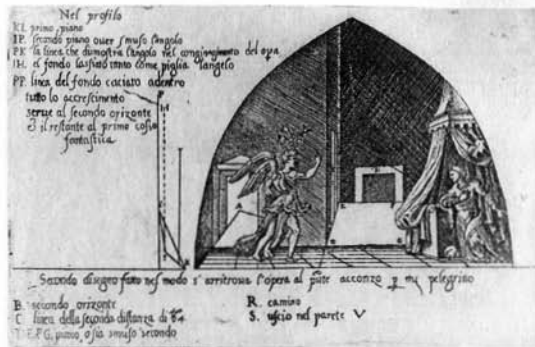 Nel profilo
KI. primo piano
IP. secondo piano over smuso langolo
PK la linea che dimostra langolo nel congiungimento del opa
IH. el fondo lassato tanto come piglia langelo
PP. linea del fondo caciato adentro
tutto lo accrescimento
serve al secondo orizonte
e il restante al primo cosa
fantastica
Secondo disegno fatto nel modo s'arritrova l'opera al acconzo p mi pelegrino
B. secondo orizonte
C linea della seconda distanza di
piano o sia smuso secondo
R. camino
S. uscio nel parete V